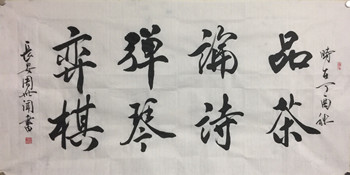 品茶
論詩
彈琴
弈棋
時在丁酉秋
長安周修瀾書